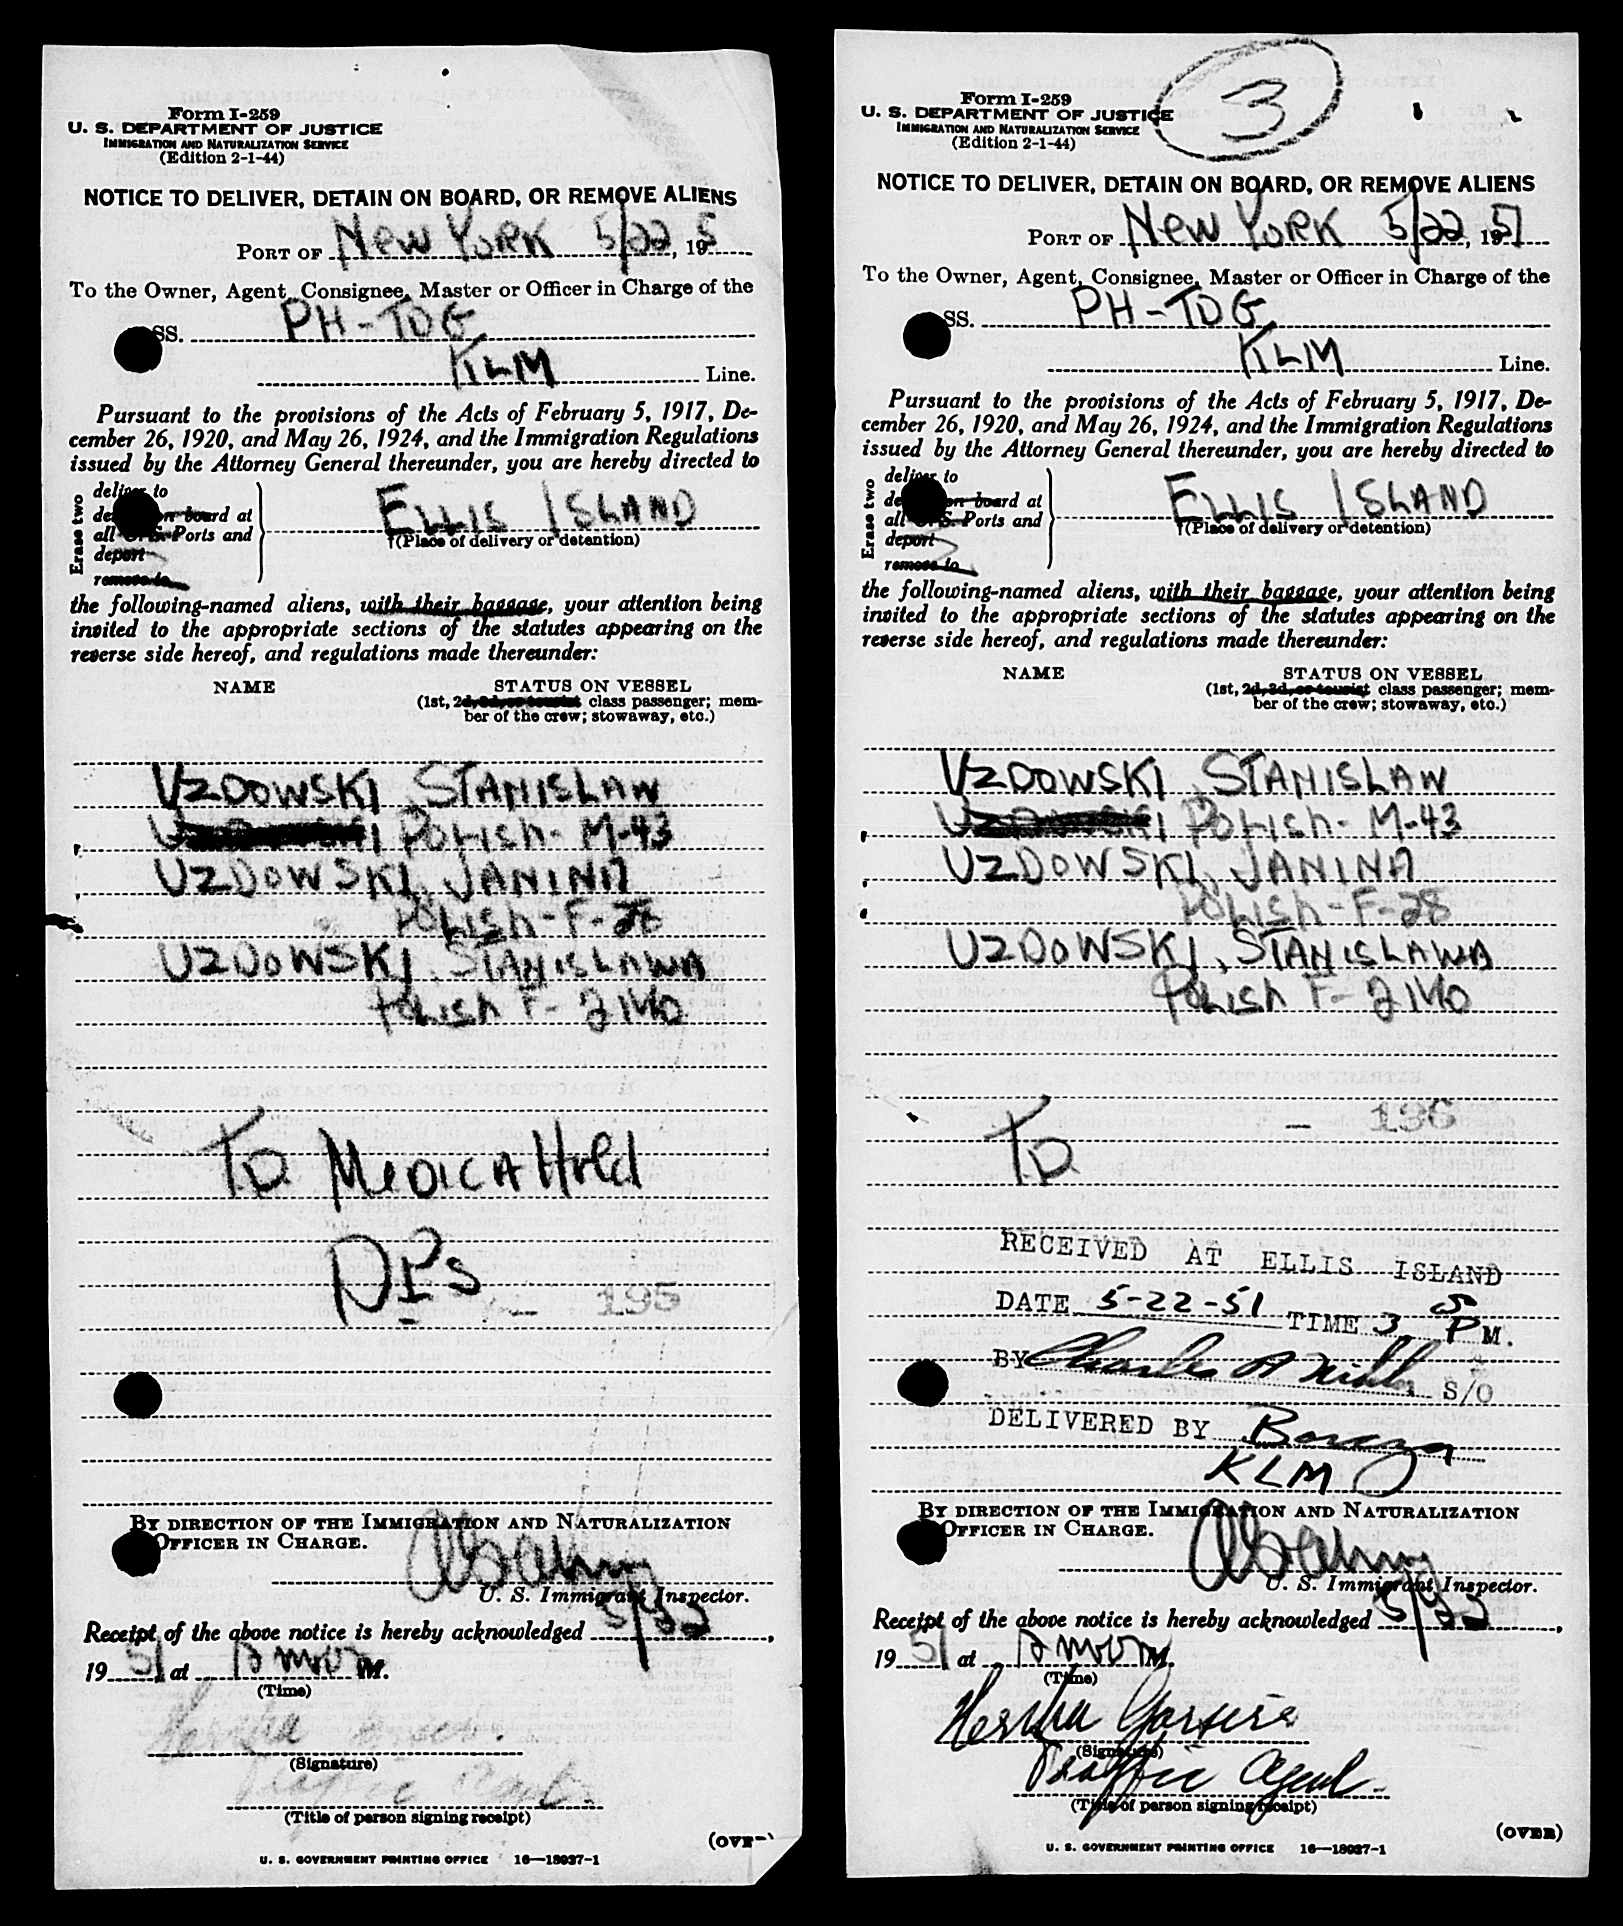 Form I-259
U. S. DEPARTMENT OF JUSTICE
IMMIGRATION AND NATURALIZATION SERVICE
(Edition 2-1-44)
NOTICE TO DELIVER, DETAIN ON BOARD, OR REMOVE ALIENS
PORT OF NEW YORK 5/22, 195
To the Owner, Agent, Consignee, Master or Officer in Charge of the
SS. PH-TDG
KLM Line.
Pursuant to the provisions of the Acts of February 5, 1917, De-
cember 26, 1920, and May 26, 1924, and the Immigration Regulations
issued by the Attorney General thereunder, you are hereby directed to
Erase two
deliver to
de on board at
all U. S. Ports and
deport
remove to
ELLIS ISLAND
†(Place of delivery or detention)
the following-named aliens, with their baggage, your attention being
invited to the appropriate sections of the statutes appearing on the
reverse side hereof, and regulations made thereunder:
NAME STATUS ON VESSEL
(1st, 2d, 3d, or tourist class passenger; mem-
ber of the crew; stowaway, etc.)
UZDOWSKI, STANISLAW
POLISH - M-43
UZDOWSKI, JANINA
POLISH - F-28
UZDOWSKI, STANISLAWA
POLISH F- 2 MO
TD MEDICAL Hold
DPs
- 195
BY DIRECTION OF THE IMMIGRATION AND NATURALIZATION
OFFICER IN CHARGE.
U. S. Immigrant Inspector.
Receipt of the above notice is hereby acknowledged 5/22,
1951 at 12 noon M.
(Time)
(Signature)
Traffic Agent
(Title of person signing receipt)
(OVE
U. S. GOVERNMENT PRINTING OFFICE 16—18037-1
3
Form I-259
U. S. DEPARTMENT OF JUSTICE
IMMIGRATION AND NATURALIZATION SERVICE
(Edition 2-1-44)
NOTICE TO DELIVER, DETAIN ON BOARD, OR REMOVE ALIENS
PORT OF NEW YORK 5/22, 1951
To the Owner, Agent, Consignee, Master or Officer in Charge of the
SS. PH-TDG
KLM Line.
Pursuant to the provisions of the Acts of February 5, 1917, De-
cember 26, 1920, and May 26, 1924, and the Immigration Regulations
issued by the Attorney General thereunder, you are hereby directed to
Erase two
deliver to
de on board at
all U. S. Ports and
deport
remove to
ELLIS ISLAND
†(Place of delivery or detention)
the following-named aliens, with their baggage, your attention being
invited to the appropriate sections of the statutes appearing on the
reverse side hereof, and regulations made thereunder:
NAME STATUS ON VESSEL
(1st, 2d, 3d, or tourist class passenger; mem-
ber of the crew; stowaway, etc.)
UZDOWSKI, STANISLAW
POLISH - M-43
UZDOWSKI, JANINA
POLISH - F-28
UZDOWSKI, STANISLAWA
POLISH F- 2 MO
- 196
TD
RECEIVED AT ELLIS ISLAND
DATE 5-22-51 TIME 3 P M.
BY Charles A S/O
DELIVERED BY
KLM
BY DIRECTION OF THE IMMIGRATION AND NATURALIZATION
OFFICER IN CHARGE.
U. S. Immigrant Inspector.
Receipt of the above notice is hereby acknowledged 5/22,
1951 at 12 noon M.
(Time)
(Signature)
Traffic Agent
(Title of person signing receipt)
(OVER)
U. S. GOVERNMENT PRINTING OFFICE 16—18037-1